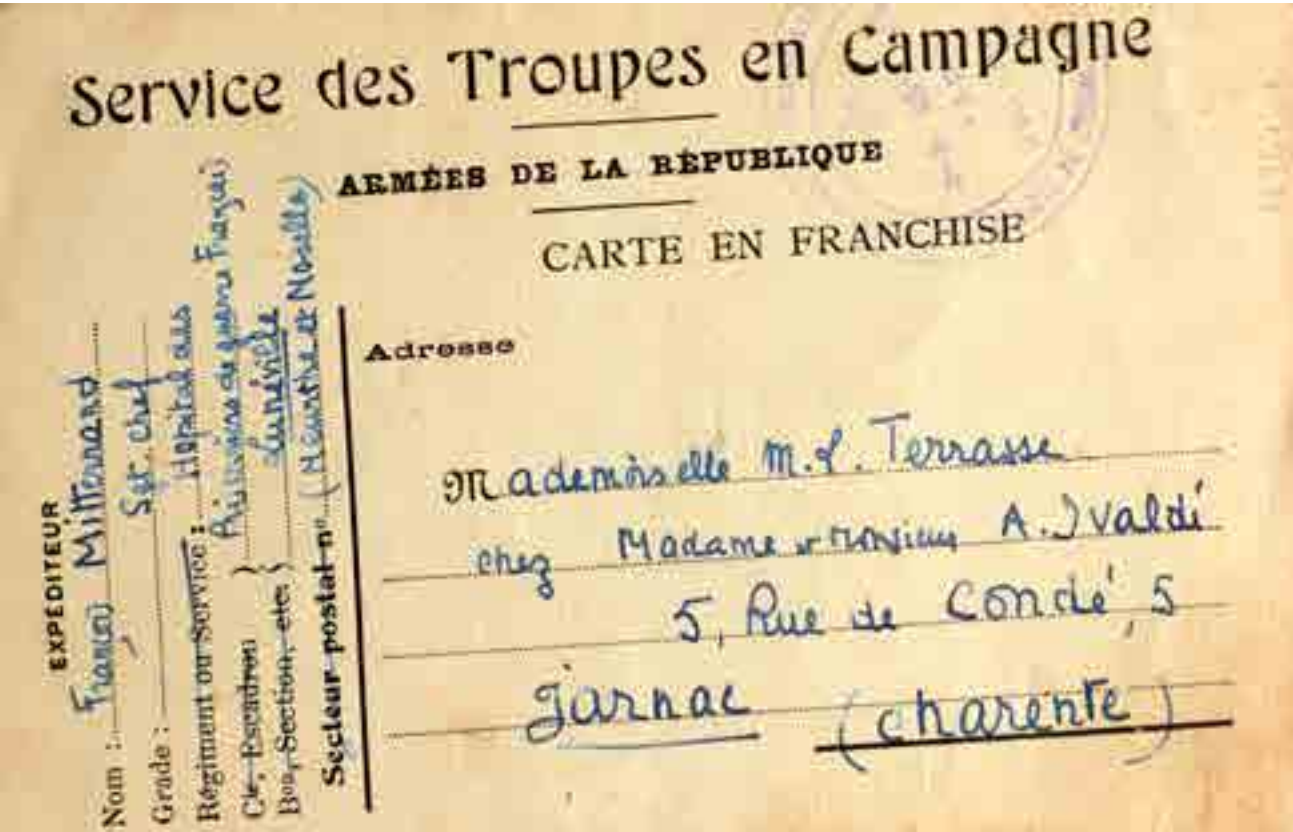 Service des Troupes en Campagne
ARMÉES DE LA RÉPUBLIQUE
CARTE EN FRANCHISE
EXPÉDITEUR
Nom : François Mitterrand
Grade : Sgt. chef
Régiment ou Service : Hôpital aus
Cie, Escadron } Prisonniers de guerre Français
Bon, Section, etc. } Lunéville
Secteur postal n° (Meurthe et Moselle)
Adresse
Mademoiselle M.L. Terrasse
chez Madame et Monsieur A. Ivaldi
5, Rue de Condé, 5
Jarnac (Charente)